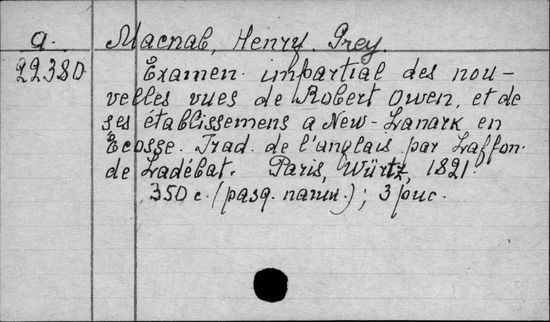 a. Macnab, Henry Grey.
22380 Examen impartial des nou-
velles vues de Robert Owen, et de
ses établissemens a New-Lanark en
Écosse. Trad. de l'anglais par Laffon
de Ladébat. Paris, Würtz, 1821.
350 с. (разд. паги.); 3 рис.